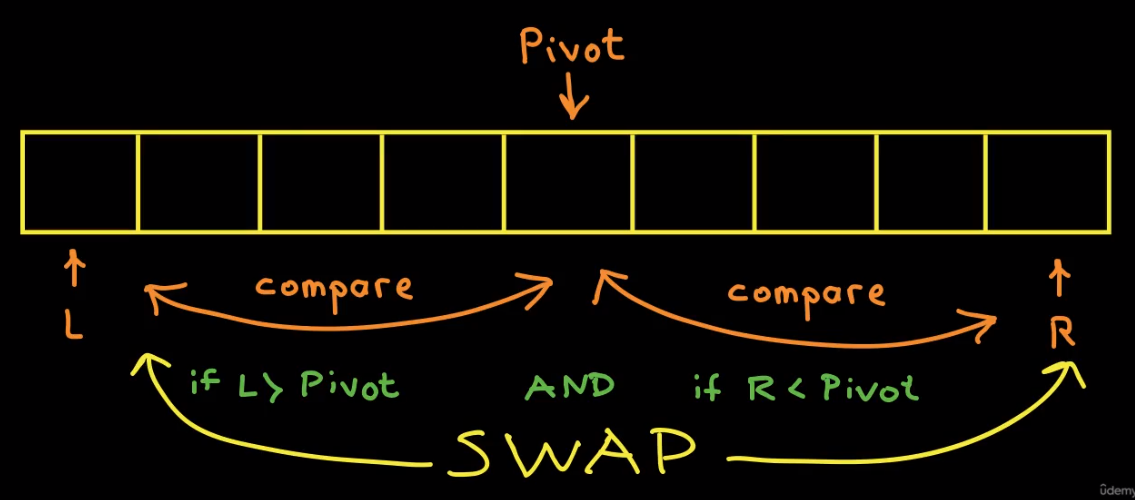 Pivot
compare
compare
L
R
if L > Pivot AND if R < Pivot
SWAP
ûdemy